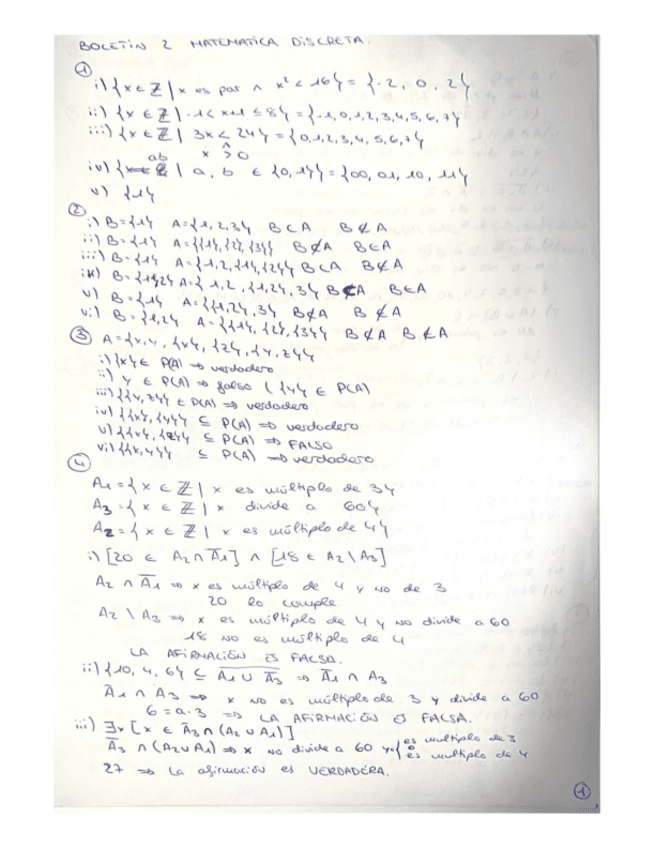 BOLETÍN 2 MATEMÁTICA DISCRETA.
①
i) {x ∈ ℤ | x es par ∧ x² < 16} = {-2, 0, 2}
ii) {x ∈ ℤ | -1 < x+1 ≤ 8} = {-1, 0, 1, 2, 3, 4, 5, 6, 7}
iii) {x ∈ ℤ | 3x < 24} = {0, 1, 2, 3, 4, 5, 6, 7}
∧
x > 0
iv) {ab | a, b ∈ {0, 1}} = {00, 01, 10, 11}
v) {1}
②
i) B = {1} A = {1, 2, 3} B ⊂ A B ∉ A
ii) B = {1} A = {{1}, {2}, {3}} B ⊄ A B ∈ A
iii) B = {1} A = {1, 2, {1}, {2}} B ⊂ A B ∉ A
iv) B = {1, 2} A = {1, 2, {1, 2}, 3} B ⊂ A B ∈ A
v) B = {1} A = {{1, 2}, 3} B ⊄ A B ∉ A
vi) B = {1, 2} A = {{1}, {2}, {3}} B ⊄ A B ∉ A
③ A = {x, y, {x}, {z}, {y, z}}
i) {x} ∈ P(A) ⇒ verdadero
ii) y ∈ P(A) ⇒ falso ( {y} ∈ P(A)
iii) {{y, z}} ∈ P(A) ⇒ verdadero
iv) {{x}, {y}} ⊆ P(A) ⇒ verdadero
v) {{x}, {z}} ⊆ P(A) ⇒ FALSO
vi) {{x, y}} ⊆ P(A) ⇒ verdadero
④
A1 = {x ∈ ℤ | x es múltiplo de 3}
A3 = {x ∈ ℤ | x divide a 60}
A2 = {x ∈ ℤ | x es múltiplo de 4}
i) [20 ∈ A2 ∩ A̅1] ∧ [18 ∈ A2 \ A3]
A2 ∩ A̅1 ⇒ x es múltiplo de 4 y no de 3
20 lo cumple
A2 \ A3 ⇒ x es múltiplo de 4 y no divide a 60
18 no es múltiplo de 4
LA AFIRMACIÓN ES FALSA.
ii) {10, 4, 6} ⊆ A̅1 ∪ A̅3 ⇒ A̅1 ∩ A3
A̅1 ∩ A3 ⇒ x no es múltiplo de 3 y divide a 60
6 = a·3 ⇒ LA AFIRMACIÓN ES FALSA.
iii) ∃x [x ∈ A̅3 ∩ (A2 ∪ A1)]
A̅3 ∩ (A2 ∪ A1) ⇒ x no divide a 60 y { es multiplo de 3
o
es multiplo de 4
27 ⇒ La afirmación es VERDADERA.
①